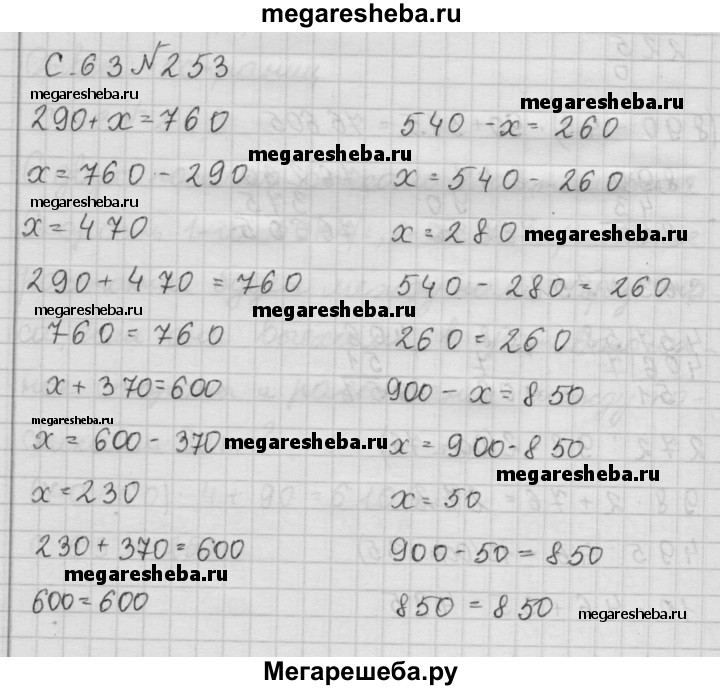 megaresheba.ru
С.63 №253
megaresheba.ru
290+x=760
x=760-290
x=470
megaresheba.ru
290+470=760
megaresheba.ru
760=760
x+370=600
megaresheba.ru
x=600-370
x=230
230+370=600
megaresheba.ru
600=600
megaresheba.ru
540-x=260
megaresheba.ru
x=540-260
x=280
megaresheba.ru
540-280=260
megaresheba.ru
260=260
megaresheba.ru
900-x=850
megaresheba.ru
x=900-850
megaresheba.ru
x=50
900-50=850
850=850
megaresheba.ru
Мегарешеба.ру